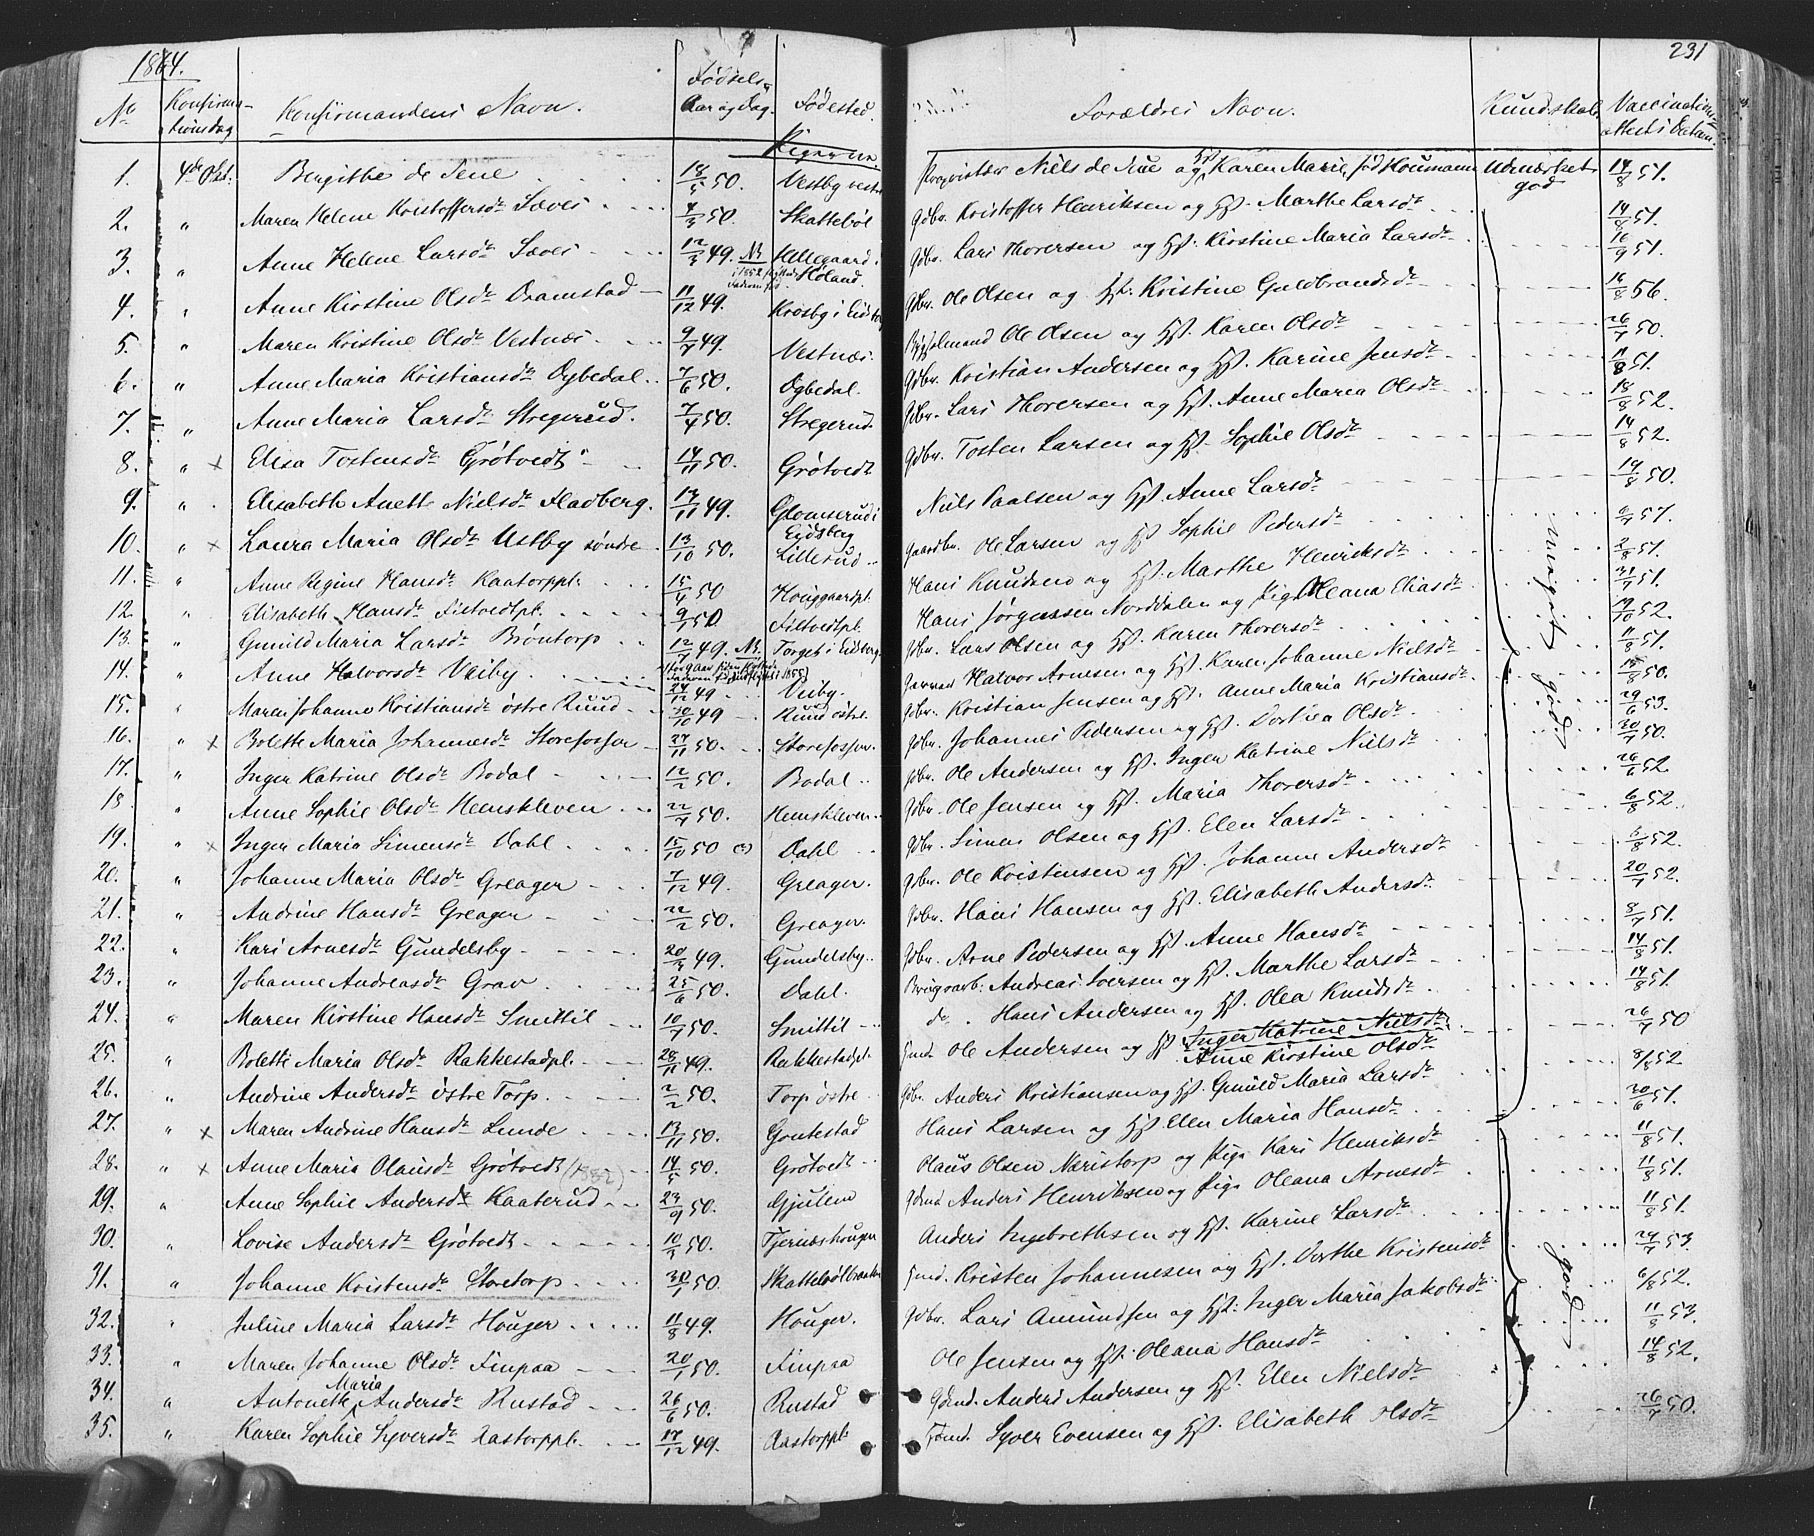 1864.
231
No
Konfirmationsdag
Konfirmandens Navn.
Fødsels Aar og Dag.
Fødested.
Forældres Navn.
Kundskab
Vaccinations attests Datum.
Pigerne
1. 4de Okt. Bergithe de Seue 18/5 50. Vestby vestre Niels de Seue og Hst. Karen Marie, fød Houmann Udmærket god 14/8 51.
2. " Maren Helene Kristoffersdr Sæves 4/3 50. Skattebøl Gdbr. Kristoffer Henriksen og Hst. Marthe Larsdr 14/8 51.
3. " Anne Helene Larsdr Sæves 12/3 49. NB. Hellegaard i Høland. Gdbr. Lars Thoresen og Hst. Kirstine Maria Larsdr 16/9 51.
4. " Anne Kirstine Olsdr Dramstad 11/12 49. Krosby i Eidsberg Gdbr. Ole Olsen og Hst. Kristine Guldbrandsdr 16/8 56.
5. " Maren Kristine Olsdr Vestnæs 9/7 49. Vestnæs. Ole Olsen og Hst. Karen Olsdr 26/7 50.
6. " Anne Maria Kristiansdr Ogbedal 7/6 50. Ogbedal. Gdbr. Kristian Andersen og Hst. Karine Jensdr 11/8 51.
7. " Anne Maria Larsdr Stregerud. 7/4 50. Stregerud. Gdbr. Lars Thoresen og Hst. Anne Maria Olsdr 18/8 52.
8. " x Elisa Tostensdr Grøtvedt 14/11 50. Grøtvedt Gdbr. Tosten Larsen og Hst. Sophie Olsdr 14/8 52.
9. " Elisabeth Anette Nielsdr Fladberg. 13/11 49. Glomsrud i Eydsberg Niels Paalsen og Hst. Anne Larsdr 19/8 50.
10. " x Laura Maria Olsdr Ustby søndre 13/10 50. Lillerud Gaardbr. Ole Larsen og Hst. Sophie Pedersdr 6/7 57.
11. " Anne Regine Hansdr Kaatorppl. 15/4 50 Houggaardpl. Hans Knudsen og Hst. Marthe Henriksdr 2/8 51.
12. " Elisabeth Hansdr Fistvedtpl. 9/7 50. Fistvedtpl. Hans Jørgensen Norddalen og Pige Oleana Eliasdr 31/7 51.
13. " Gunild Maria Larsdr Brøntorp 12/7 49. NB. Torget i Eidsberg Gdbr. Lars Olsen og Hst. Karen Thoresdr 19/10 52.
14. " Anne Halvorsdr Veiby 24/12 49 Veiby. Halvor Arnesen og Hst. Karen Johanne Nielsdr 11/8 51.
15. " Maren Johanne Kristiansdr østre Ruud 30/10 49 Ruud østre. Gdbr. Kristian Jensen og Hst. Anne Maria Kristiansdr 15/8 50.
16. " x Bolette Maria Johannesdr Storefosser 27/11 50. Storefosser. Gdbr. Johannes Pedersen og Hst. Dorthea Olsdr 29/6 53.
17. " Inger Katrine Olsdr Bodal 12/2 50. Bodal Gdbr. Ole Andersen og Hst. Inger Katrine Nielsdr 30/7 50.
18 " Anne Sophie Olsdr Hemskleven 22/7 50. Hemskleven Gdbr. Ole Jensen og Hst. Maria Thoresdr 26/6 52.
19. " x Inger Maria Simensdr Dahl 15/10 50 Dahl Gdbr. Simen Olsen og Hst. Elen Larsdr 6/8 52.
20. " Johanne Maria Olsdr Greager 7/12 49. Greager. Gdbr. Ole Kristensen og Hst. Johanne Andersdr 6/8 52.
21. " Andrine Hansdr Greager 22/2 50. Greager. Gdbr. Hans Hansen og Hst. Elisabeth Andersdr 20/7 52.
22. " Kari Arnesdr Gundelsby 20/4 49. Gundelsby. Gdbr. Arne Pedersen og Hst. Anne Hansdr 8/7 51.
23. " Johanne Andreasdr Grav 25/6 50. Dahl. Brugsarb. Andreas Iversen og Hst. Marthe Larsdr 14/8 51.
24. " Maren Kirstine Hansdr Smittil 10/7 50. Smittil do. Hans Andersen og Hst. Olea Knudsdr 14/8 51.
25. " Bolette Maria Olsdr Rakkestadpl. 28/11 49. Rakkestadpl. Ole Andersen og Hst. Inger Katrine Nielsdr Anne Kirstine Olsdr 26/7 50
26. " Andrine Andersdr østre Torp. 2/2 50. Torp østre Gdbr. Anders Kristiansen og Hst. Gunild Maria Larsdr 8/8 52
27. " x Maren Andrine Hansdr Lunde 13/11 50. Gontestad Hans Larsen og Hst. Elen Maria Hansdr 30/6 51.
28. " x Anne Maria Olausdr Grøtvedt (1882) 14/5 50. Grøtvedt Olaus Olsen Næristorp og Pige Kari Henriksdr 11/8 51.
29. " Anne Sophie Andersdr Kaaterud 23/9 50. Gjulem Anders Henriksen og Pige Oleana Arnesdr 11/8 51.
30. " Lovise Andersdr Grøtvedt 10/5 50. Tjernæshougen Anders Ingebrethsen og Hst. Karine Larsdr 11/8 51.
31. " Johanne Kristensdr Storetorp 30/1 50. Skattebølbraaten Kristen Johannesen og Hst. Dorthe Kristensdr 24/7 53.
32. " Juline Maria Larsdr Houger 11/8 49. Houger. Gdbr. Lars Amundsen og Hst. Inger Maria Jakobsdr 6/8 52.
33. " Maren Johanne Olsdr Finpaa 20/1 50. Finpaa Ole Jensen og Hst. Oleana Hansdr 11/8 53.
34. " Antonette Maria Andersdr Rustad 26/6 50. Rustad Anders Andersen og Hst. Elen Nielsdr 14/8 52.
35. " Karen Sophie Syversdr Aastorppl. 17/12 49. Aastorppl. Syver Evensen og Hst. Elisabeth Olsdr 26/7 50.
meget god
god